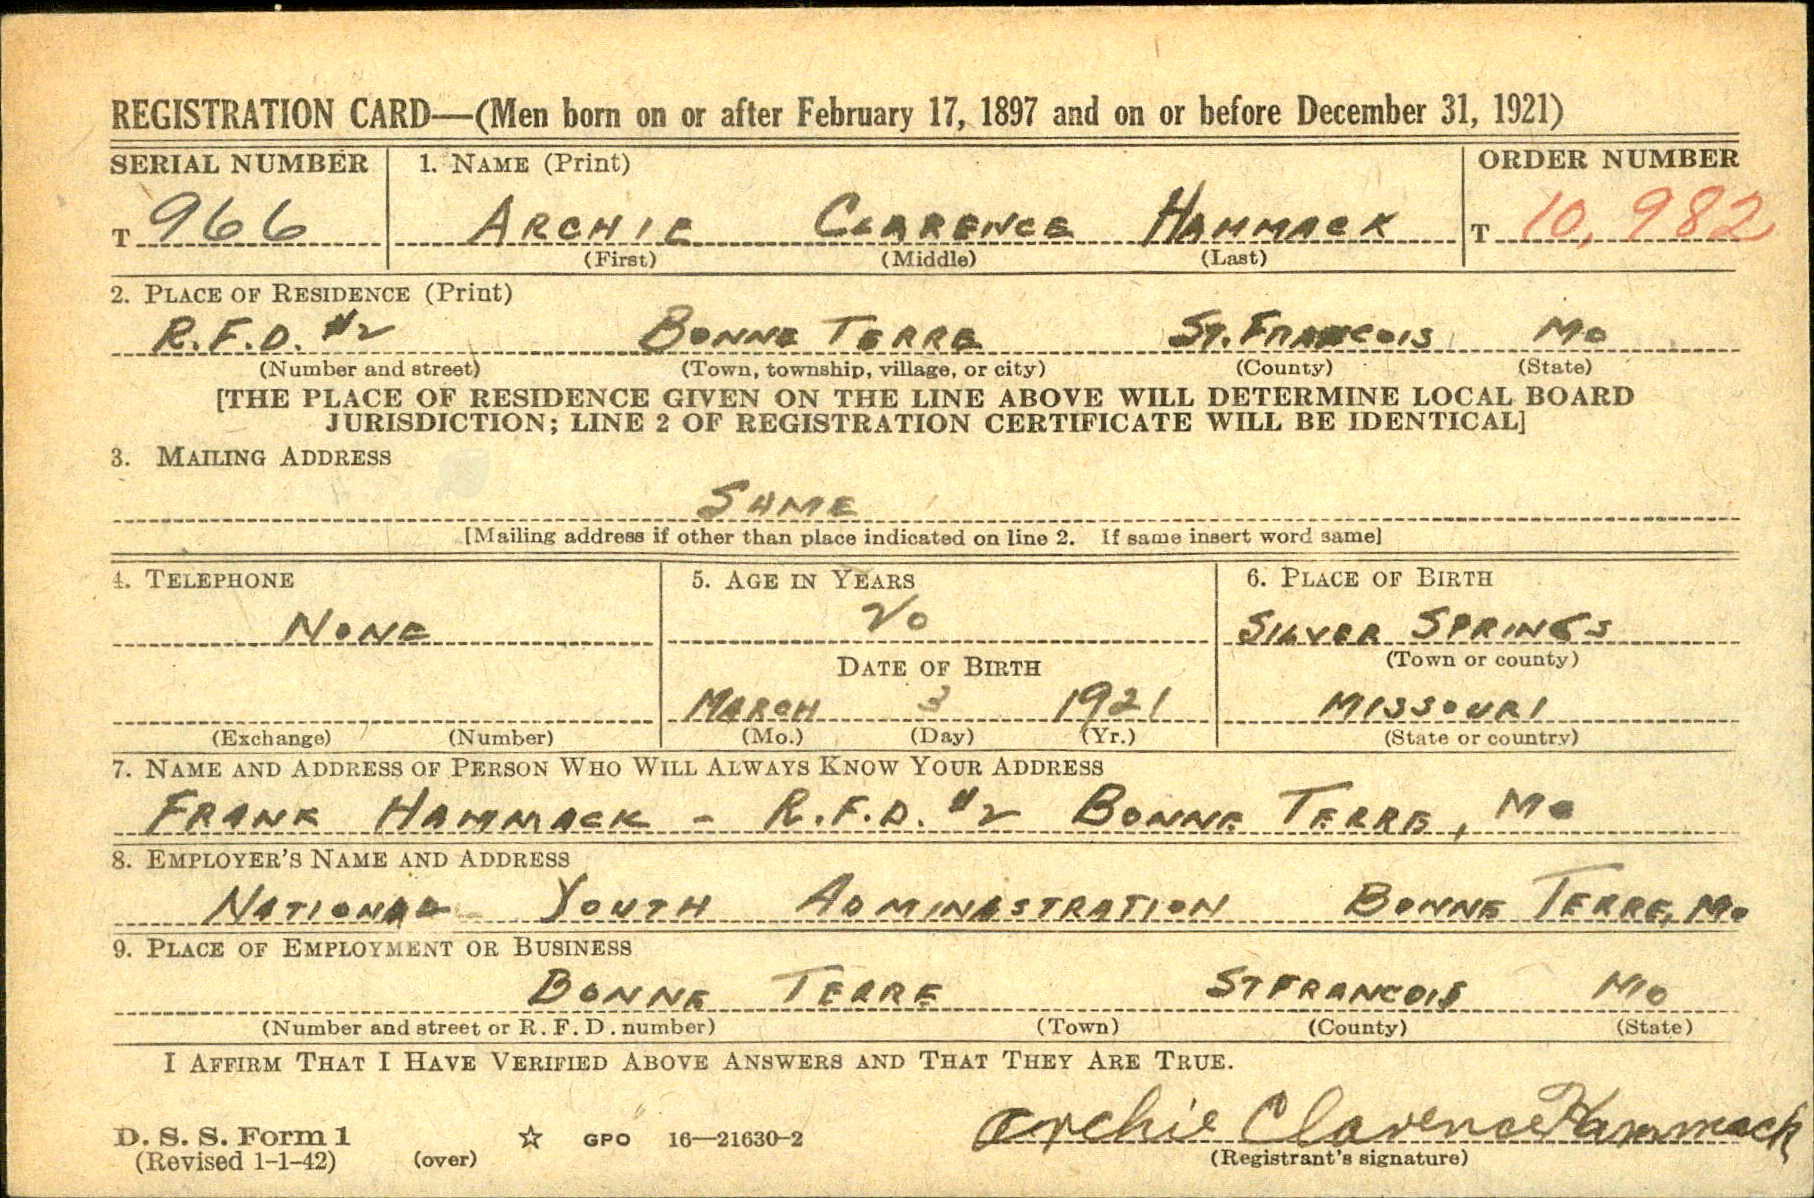 REGISTRATION CARD—(Men born on or after February 17, 1897 and on or before December 31, 1921)
SERIAL NUMBER 1. NAME (Print) ORDER NUMBER
T 966 ARCHIE CLARENCE HAMMACK T 10,982
(First) (Middle) (Last)
2. PLACE OF RESIDENCE (Print)
R.F.D. #2 BONNE TERRE ST. FRANCOIS MO
(Number and street) (Town, township, village, or city) (County) (State)
[THE PLACE OF RESIDENCE GIVEN ON THE LINE ABOVE WILL DETERMINE LOCAL BOARD
JURISDICTION; LINE 2 OF REGISTRATION CERTIFICATE WILL BE IDENTICAL]
3. MAILING ADDRESS
SAME
[Mailing address if other than place indicated on line 2. If same insert word same]
4. TELEPHONE 5. AGE IN YEARS 6. PLACE OF BIRTH
NONE 20 SILVER SPRINGS
DATE OF BIRTH (Town or county)
MARCH 3 1921 MISSOURI
(Exchange) (Number) (Mo.) (Day) (Yr.) (State or country)
7. NAME AND ADDRESS OF PERSON WHO WILL ALWAYS KNOW YOUR ADDRESS
FRANK HAMMACK - R.F.D. #2 BONNE TERRE, MO
8. EMPLOYER'S NAME AND ADDRESS
NATIONAL YOUTH ADMINASTRATION BONNE TERRE, MO
9. PLACE OF EMPLOYMENT OR BUSINESS
BONNE TERRE ST FRANCOIS MO
(Number and street or R. F. D. number) (Town) (County) (State)
I AFFIRM THAT I HAVE VERIFIED ABOVE ANSWERS AND THAT THEY ARE TRUE.
Archie Clarence Hammack
D. S. S. Form 1 ☆ GPO 16—21630-2
(Revised 1-1-42) (over) (Registrant's signature)